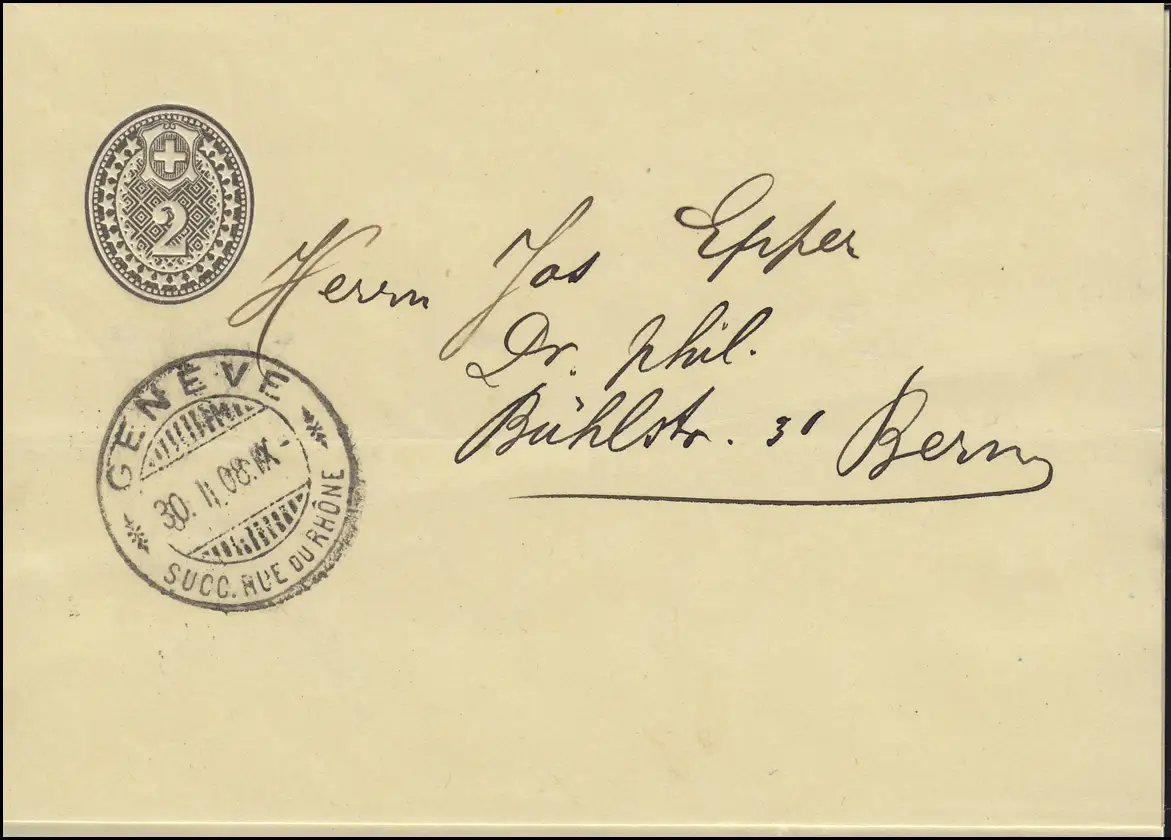 2
Herrn Jos Epper
Dr. phil.
Bühlstr. 31 Bern
GENÈVE
30. II. 08. IX -
SUCC. RUE DU RHÔNE